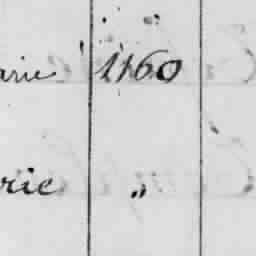 arie 1160
rie "